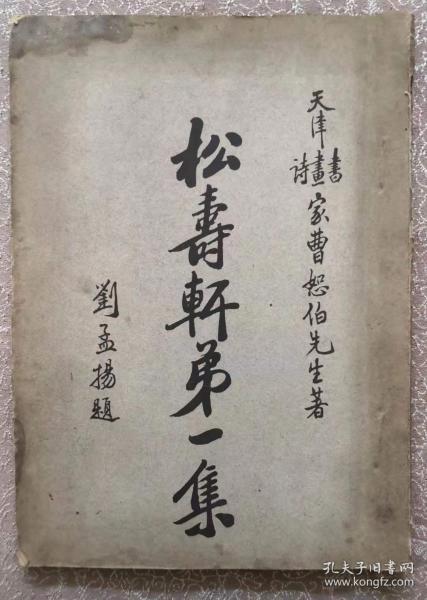 天津書畫詩家曹恕伯先生著
松壽軒第一集
劉孟揚題
孔夫子旧书网
www.kongfz.com